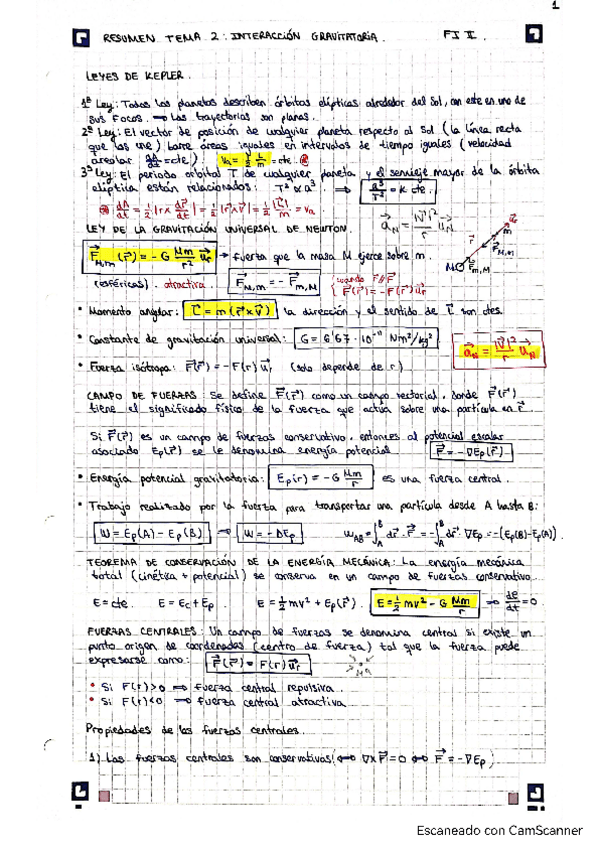 1
RESUMEN TEMA 2: INTERACCIÓN GRAVITATORIA. FI II.
LEYES DE KEPLER.
1ª Ley: Todos los planetas describen órbitas elípticas alrededor del Sol, con este en uno de
sus focos. ⇒ Las trayectorias son planas.
2ª Ley: El vector de posición de cualquier planeta respecto al Sol (la línea recta
que los une) barre áreas iguales en intervalos de tiempo iguales (velocidad
areolar dA/dt = cte). va = 1/2 L/m = cte.
3ª Ley: El periodo orbital T de cualquier planeta y el semieje mayor de la órbita
elíptica están relacionados: T² ∝ a³. ⇒ a³/T² = k cte.
dA/dt = 1/2 |r⃗ x dr⃗/dt| = 1/2 |r⃗ x v⃗| = 1/2 |L⃗|/m = va
a⃗N = |v⃗|²/r u⃗N
LEY DE LA GRAVITACIÓN UNIVERSAL DE NEWTON.
F⃗M,m (r⃗) = -G Mm/r² u⃗r → fuerza que la masa M ejerce sobre m.
(esféricos). atractiva. F⃗M,m = -F⃗m,M cuando r⃗ // F⃗
F⃗(r⃗) = -F(r) u⃗r
u⃗r
m
r⃗
F⃗M,m
M F⃗m,M
• Momento angular: L⃗ = m (r⃗ x v⃗) la dirección y el sentido de L⃗ son ctes.
• Constante de gravitación universal: G = 6'67 · 10⁻¹¹ Nm²/kg²
a⃗N = |v⃗|²/r u⃗N
• Fuerza isótropa: F⃗(r⃗) = -F(r) u⃗r (solo depende de r)
CAMPO DE FUERZAS: Se define F⃗(r⃗) como un campo vectorial, donde F⃗(r⃗)
tiene el significado físico de la fuerza que actúa sobre una partícula en r⃗.
Si F⃗(r⃗) es un campo de fuerzas conservativo, entonces al potencial escalar
asociado Ep(r⃗) se le denomina energía potencial. F⃗ = -∇Ep(r⃗)
• Energía potencial gravitatoria: Ep(r) = -G Mm/r es una fuerza central.
• Trabajo realizado por la fuerza para transportar una partícula desde A hasta B:
W = Ep(A) - Ep(B) ⇒ W = -ΔEp WAB = ∫AB dr⃗ · F⃗ = -∫AB dr⃗ · ∇Ep = -(Ep(B)-Ep(A)).
TEOREMA DE CONSERVACIÓN DE LA ENERGÍA MECÁNICA: La energía mecánica
total (cinética + potencial) se conserva en un campo de fuerzas conservativo.
E = cte. E = Ec + Ep. E = 1/2 mv² + Ep(r⃗). E = 1/2 mv² - G Mm/r ⇒ dE/dt = 0
FUERZAS CENTRALES: Un campo de fuerzas se denomina central si existe un
punto origen de coordenadas (centro de fuerza) tal que la fuerza puede
expresarse como: F⃗(r⃗) = F(r) u⃗r
• Si F(r) > 0 ⇒ fuerza central repulsiva.
• Si F(r) < 0 ⇒ fuerza central atractiva.
Propiedades de las fuerzas centrales.
1) Las fuerzas centrales son conservativas (⇔ ∇ x F⃗ = 0 ⇔ F⃗ = -∇Ep)
Escaneado con CamScanner